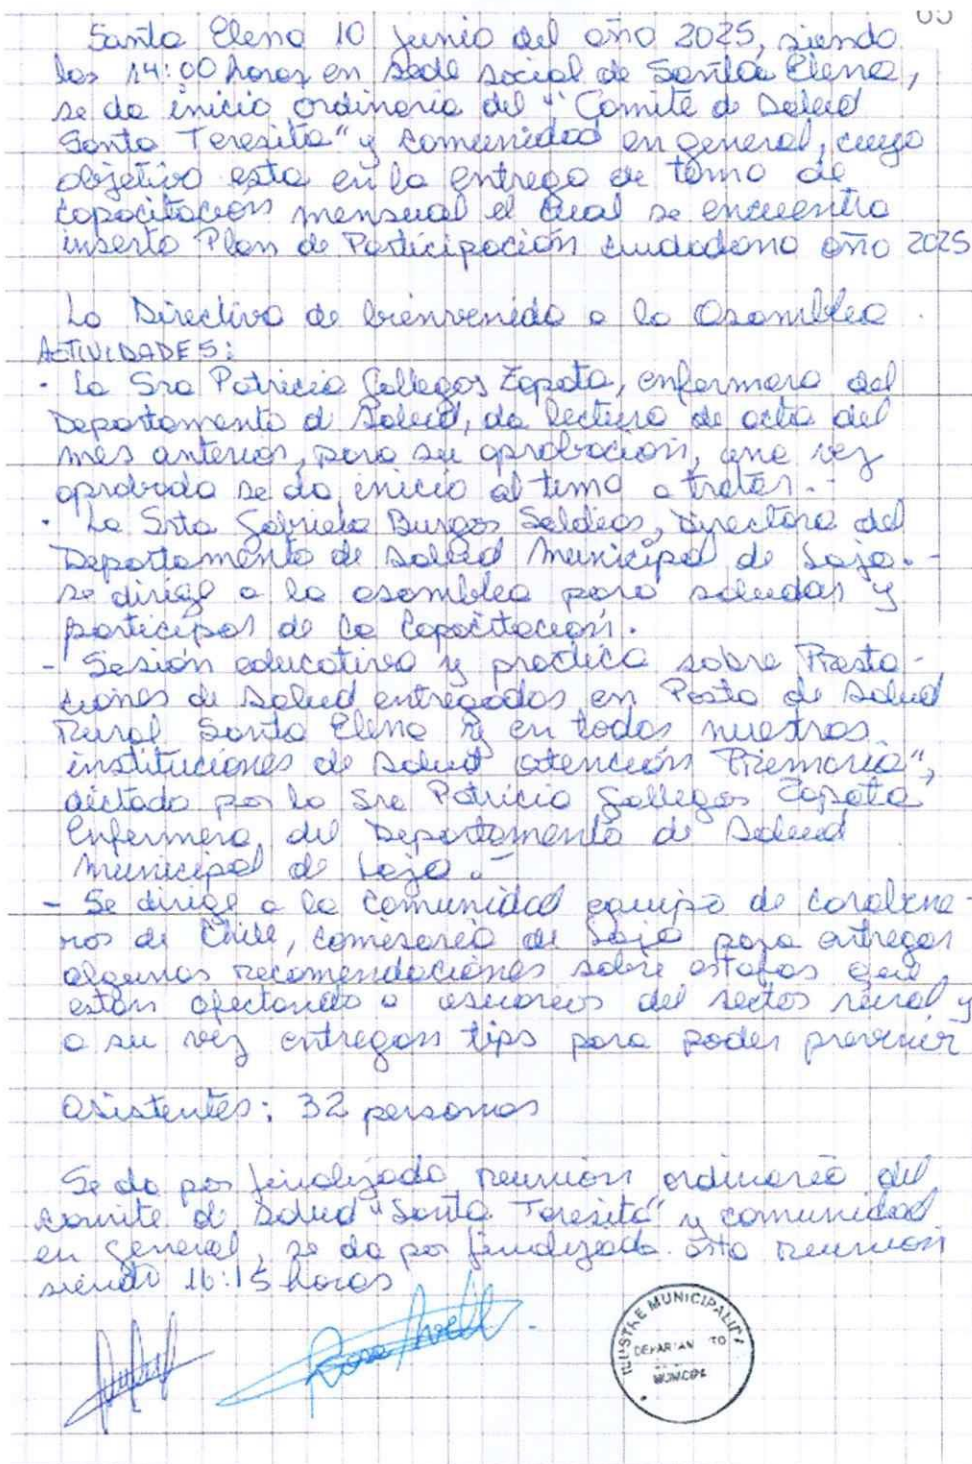 Santa Elena 10 junio del año 2025, siendo
las 14:00 horas en sede social de Santa Elena,
se da inicio ordinaria del "Comite de Salud
Santa Teresita" y comunidad en general, cuyo
objetivo esta en la entrega de tema de
capacitación mensual el cual se encuentra
inserto Plan de Participación ciudadana año 2025
La Directiva da bienvenida a la Asamblea.
ACTIVIDADES:
· La Sra Patricia Gallegos Zapata, enfermera del
Departamento d Salud, da lectura de acta del
mes anterior, para su aprobación, una vez
aprobada se da inicio al tema a tratar.-
· La Srta Gabriela Burgos Saldias, Directora del
Departamento de Salud Municipal de Laja.-
se dirige a la asamblea para saludar y
participar de la capacitación.
- Sesión educativa y practica sobre Presta-
ciones de Salud entregadas en Posta de Salud
Rural Santa Elena y en todas nuestras
instituciones de Salud atención Primaria",
dictado por la Sra Patricia Gallegos Zapata
Enfermera del Departamento de Salud
Municipal de Laja.-
- Se dirige a la comunidad equipo de carabine-
ros de Chile, comisaria de Laja para entregar
algunas recomendaciones sobre estafas que
estan afectando a usuarios del sector rural y
a su vez entregan tips para poder prevenir
Asistentes: 32 personas
Se da por finalizada reunion ordinaria del
comite d Salud "Santa Teresita" y comunidad
en general, se da por finalizada esta reunion
siendo 16:15 horas
Rosa
ILUSTRE MUNICIPALID
DEPARTAM TO
MUNICIPA